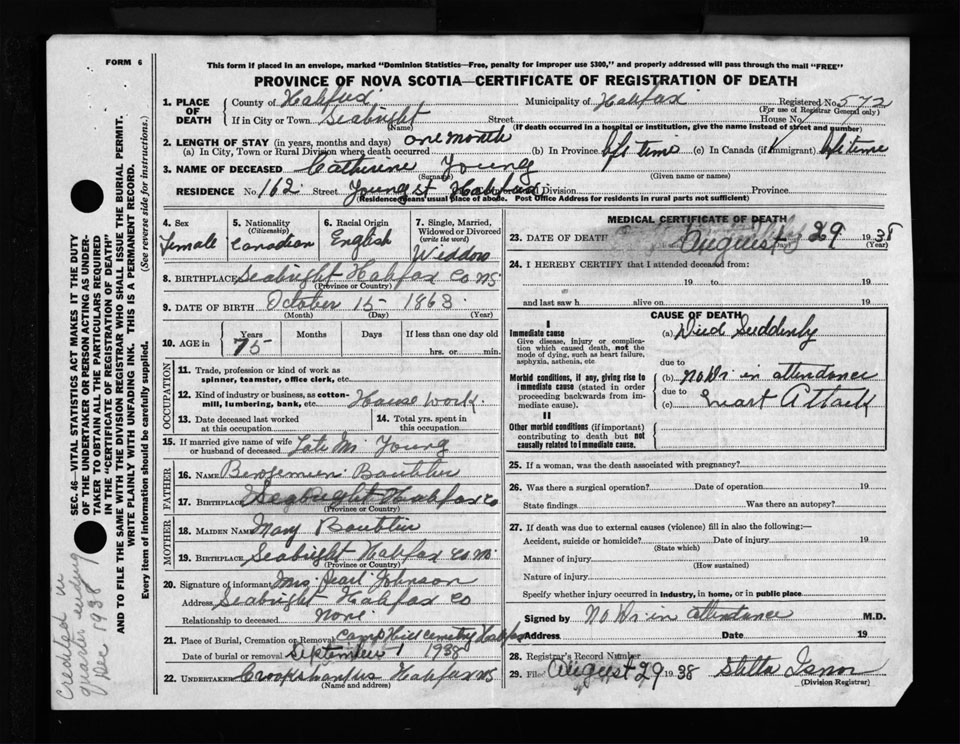 FORM 6
This form if placed in an envelope, marked "Dominion Statistics—Free, penalty for improper use $300," and properly addressed will pass through the mail "FREE"
PROVINCE OF NOVA SCOTIA—CERTIFICATE OF REGISTRATION OF DEATH
1. PLACE OF DEATH
County of Halifax Municipality of Halifax Registered No. 572
(For use of Registrar General only)
If in City or Town Seabright Street House No.
(Name) (If death occurred in a hospital or institution, give the name instead of street and number)
2. LENGTH OF STAY (in years, months and days)
(a) In City, Town or Rural Division where death occurred one month (b) In Province life time (c) In Canada (if immigrant) life time
3. NAME OF DECEASED Catherine Young
(Surname) (Given name or names)
RESIDENCE No. 162 Street Young st Halifax Division Province
(Residence means usual place of abode. Post Office Address for residents in rural parts not sufficient)
4. Sex
female
5. Nationality (Citizenship)
Canadian
6. Racial Origin
English
7. Single, Married, Widowed or Divorced (write the word)
Widdow
8. BIRTHPLACE Seabright Halifax Co NS
(Province or Country)
9. DATE OF BIRTH October 15 1863
(Month) (Day) (Year)
10. AGE in Years Months Days If less than one day old
75 hrs. or min.
OCCUPATION
11. Trade, profession or kind of work as spinner, teamster, office clerk, etc.
12. Kind of industry or business, as cotton-mill, lumbering, bank, etc. House work.
13. Date deceased last worked at this occupation
14. Total yrs. spent in this occupation
15. If married give name of wife or husband of deceased Late M Young
FATHER
16. NAME
17. BIRTHPLACE Seabright Halifax Co
(Province or Country)
MOTHER
18. MAIDEN NAME Mary
19. BIRTHPLACE Seabright Halifax Co
(Province or Country)
20. Signature of informant Mrs. Pearl Johnson
Address Seabright Halifax Co
Relationship to deceased None
21. Place of Burial, Cremation or Removal Camp Hill cemetry Halifax
Date of burial or removal September 1 1938
22. UNDERTAKER Halifax NS
(Name and address)
MEDICAL CERTIFICATE OF DEATH
23. DATE OF DEATH August 29 1938
(Day) (Year)
24. I HEREBY CERTIFY that I attended deceased from:
19 to 19
and last saw h alive on 19
CAUSE OF DEATH
I
Immediate cause
Give disease, injury or complication which caused death, not the mode of dying, such as heart failure, asphyxia, asthenia, etc
(a) Died Suddenly
due to
Morbid conditions, if any, giving rise to immediate cause (stated in order proceeding backwards from immediate cause).
(b) no Dr in attendance
due to
(c) Heart Attack
II
Other morbid conditions (if important) contributing to death but not causally related to immediate cause.
25. If a woman, was the death associated with pregnancy?
26. Was there a surgical operation? Date of operation 19
State findings Was there an autopsy?
27. If death was due to external causes (violence) fill in also the following:—
Accident, suicide or homicide? Date of injury 19
(State which)
Manner of injury
(How sustained)
Nature of injury
Specify whether injury occurred in Industry, in home, or in public place
Signed by no Dr in attendance M.D.
Address Date 19
28. Registrar's Record Number
29. Filed August 29 1938 Stella Isnor
(Division Registrar)
SEC. 46—VITAL STATISTICS ACT MAKES IT THE DUTY
OF THE UNDERTAKER OR PERSON ACTING AS UNDER-
TAKER TO OBTAIN ALL THE PARTICULARS REQUIRED
IN THE "CERTIFICATE OF REGISTRATION OF DEATH"
AND TO FILE THE SAME WITH THE DIVISION REGISTRAR WHO SHALL ISSUE THE BURIAL PERMIT.
WRITE PLAINLY WITH UNFADING INK. THIS IS A PERMANENT RECORD.
Every item of information should be carefully supplied. (See reverse side for instructions.)
Credited in
quarter ending
Dec 1938